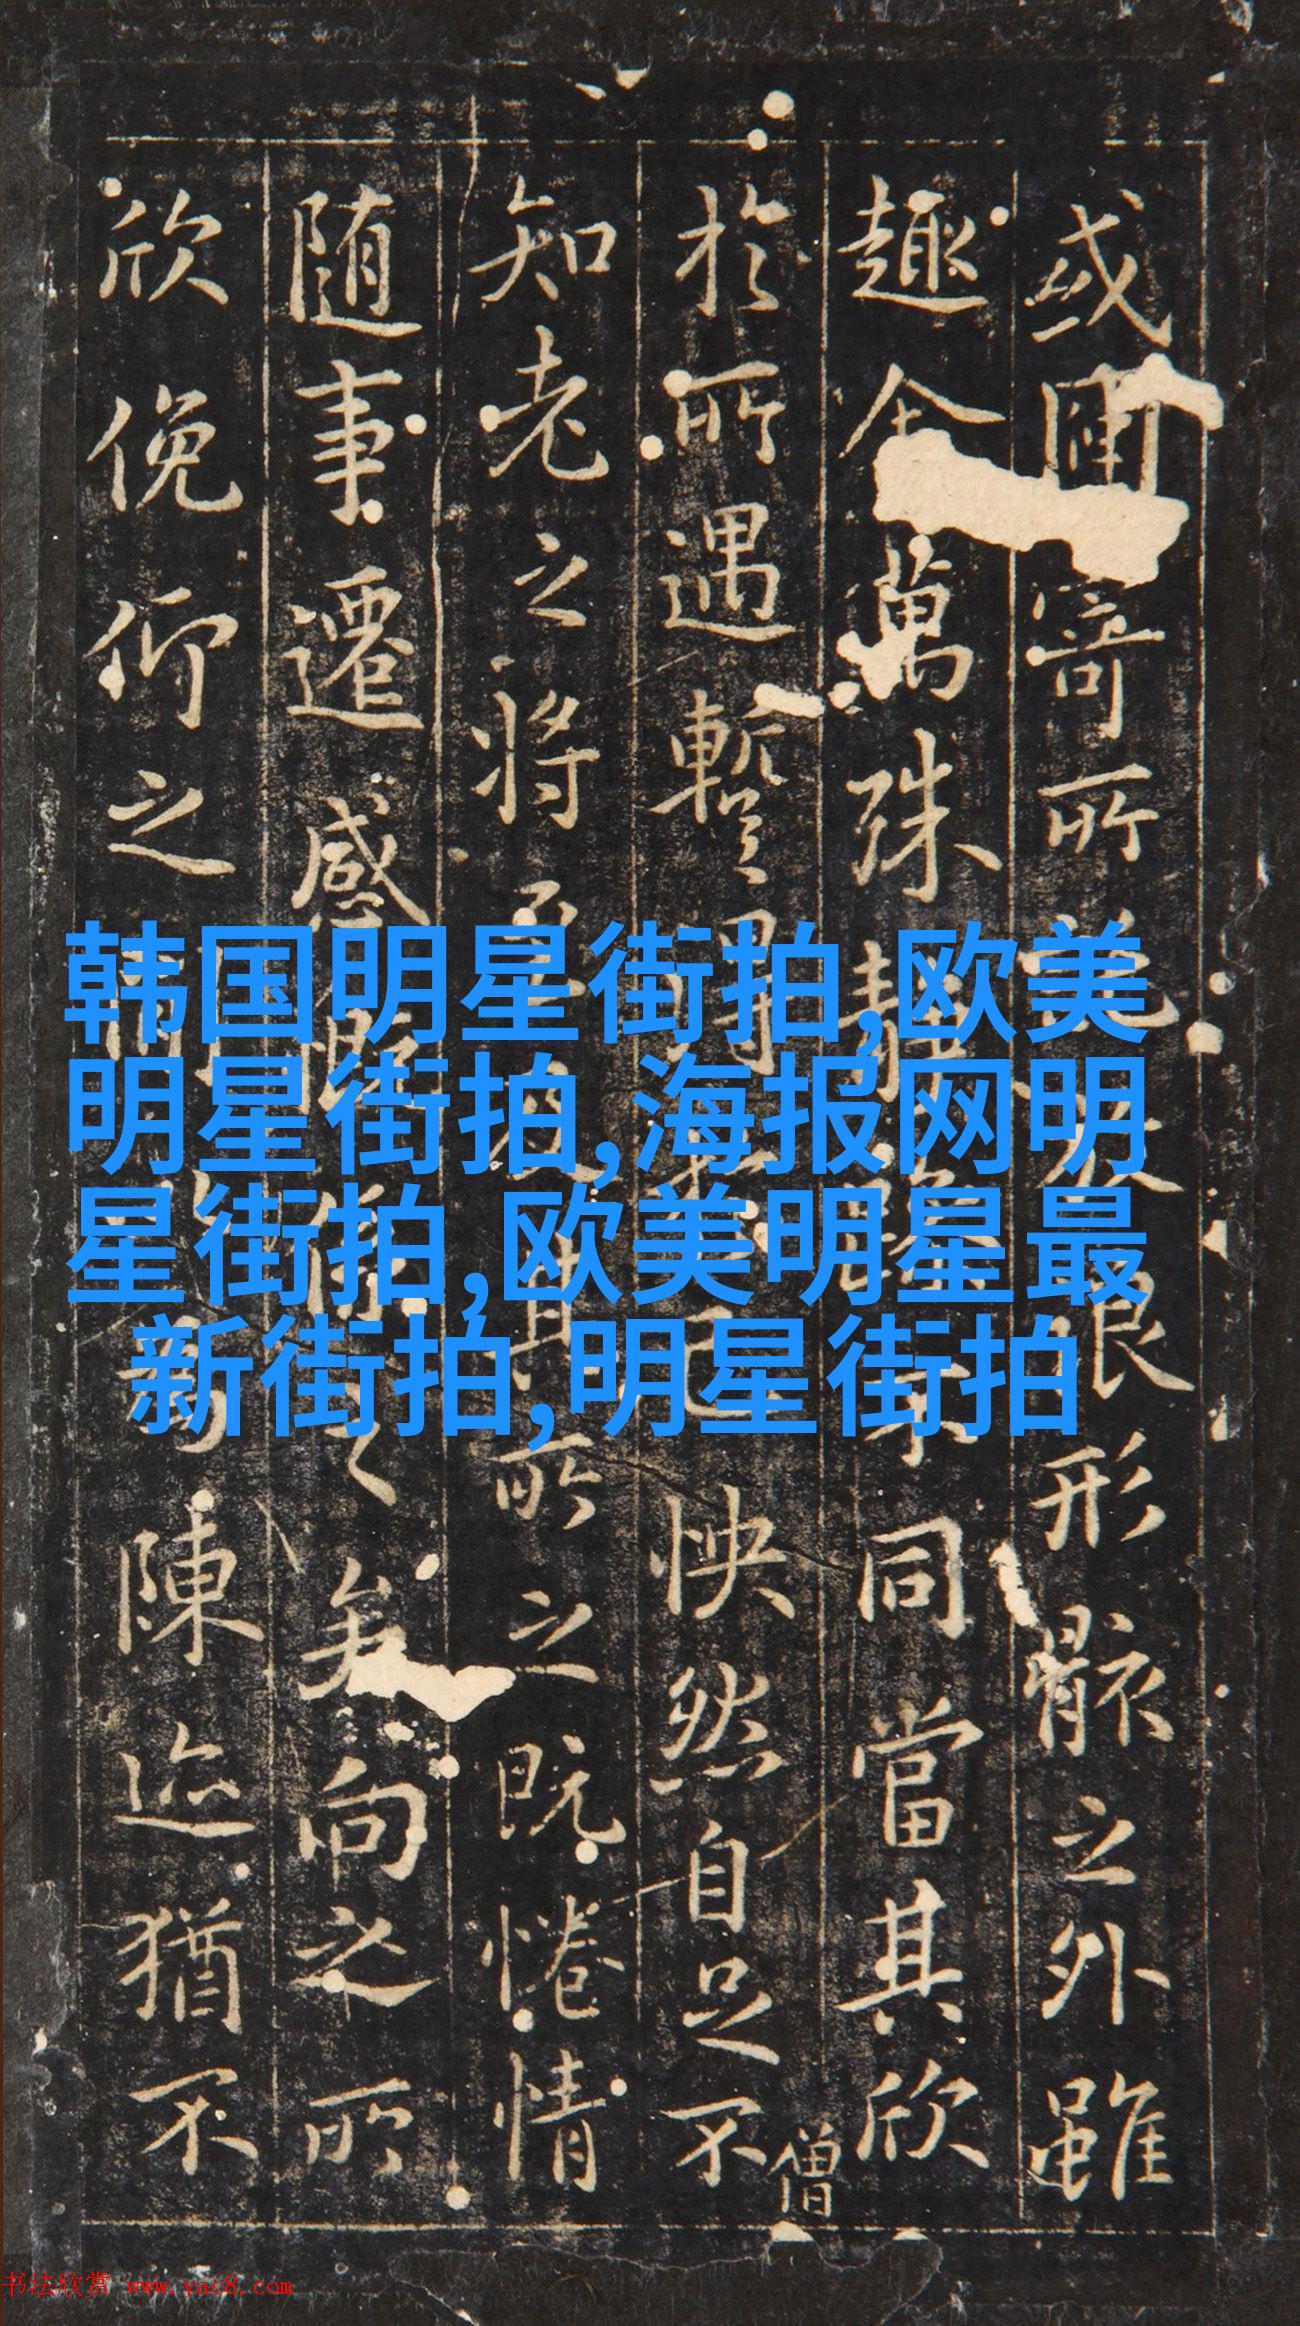 或因寄所浪形骸之外雖
趣舍萬殊靜躁不同當其欣
於所遇暫得己怏然自足不
僧
知老之將至其所之既惓情
随事遷感慨之矣向之所
欣俛仰之陳迹猶不
韩国明星街拍,欧美
明星街拍,海报网明
星街拍,欧美明星最
新街拍,明星街拍
书法欣赏 www.yac8.com